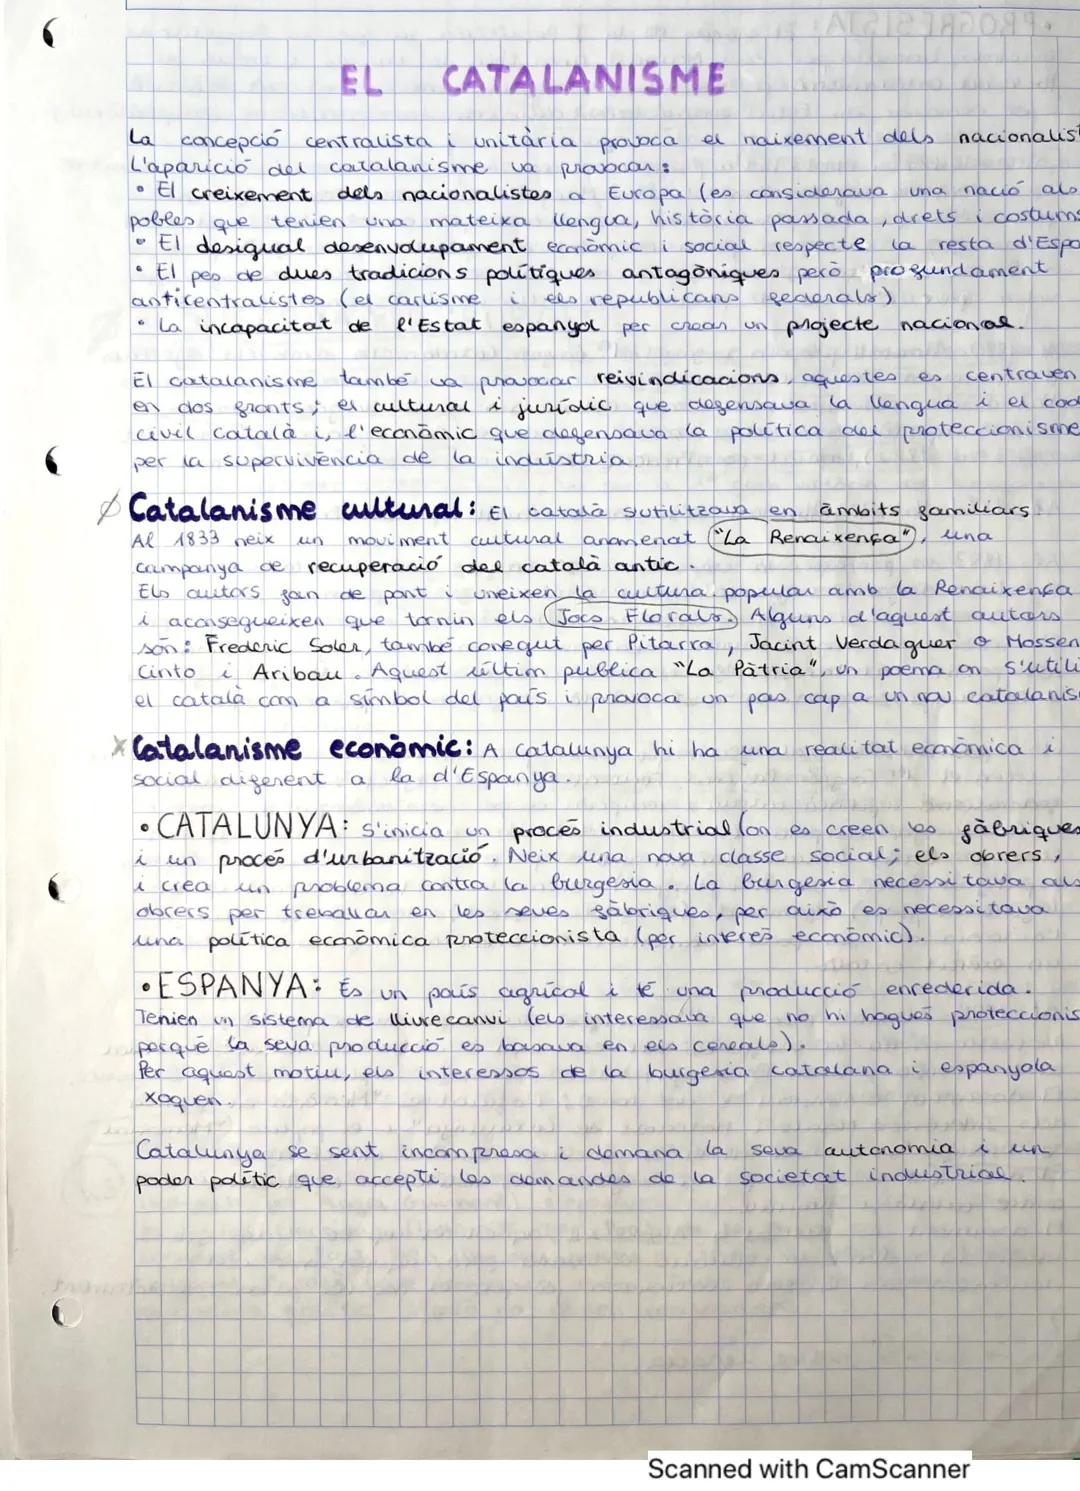 EL CATALANISME
La concepció centralista i unitària provoca el naixement dels nacionalist
L'aparició del catalanisme va provocar:
• El creixement dels nacionalistes a Europa (es considerava una nació als
pobles que tenien una mateixa llengua, història passada, drets i costums
• El desigual desenvolupament econòmic i social respecte la resta d'Espa
• El pes de dues tradicions polítiques antagòniques però profundament
anticentralistes (el carlisme i els republicans federals)
• La incapacitat de l'Estat espanyol per crear un projecte nacional.
El catalanisme també va provocar reivindicacions, aquestes es centraven
en dos fronts; el cultural i jurídic que defensava la llengua i el codi
civil català i, l'econòmic que defensava la política del proteccionisme
per la supervivència de la indústria.
Catalanisme cultural: El català s'utilitzava en àmbits familiars.
Al 1833 neix un moviment cultural anomenat "La Renaixença", una
campanya de recuperació del català antic.
Els autors fan de pont i uneixen la cultura popular amb la Renaixença
i aconsegueixen que tornin els Jocs Florals. Alguns d'aquest autors
són: Frederic Soler, també conegut per Pitarra, Jacint Verdaguer o Mossen
Cinto i Aribau. Aquest últim publica "La Pàtria", un poema on s'utili
el català com a símbol del país i provoca un pas cap a un nou catalanis
Catalanisme econòmic: A Catalunya hi ha una realitat econòmica i
social diferent a la d'Espanya.
• CATALUNYA: S'inicia un procés industrial (on es creen les fàbriques
i un procés d'urbanització. Neix una nova classe social; els obrers,
i crea un problema contra la burgesia. La burgesia necessitava als
obrers per treballar en les seves fàbriques, per això es necessitava
una política econòmica proteccionista (per interès econòmic).
• ESPANYA: És un país agrícol i té una producció enrederida.
Tenien un sistema de lliurecanvi (els interessava que no hi hagués proteccionis
perquè la seva producció es basava en els cereals).
Per aquest motiu, els interessos de la burgesia catalana i espanyola
xoquen.
Catalunya se sent incompresa i demana la seva autonomia i un
poder polític que accepti les demandes de la societat industrial.
Scanned with CamScanner